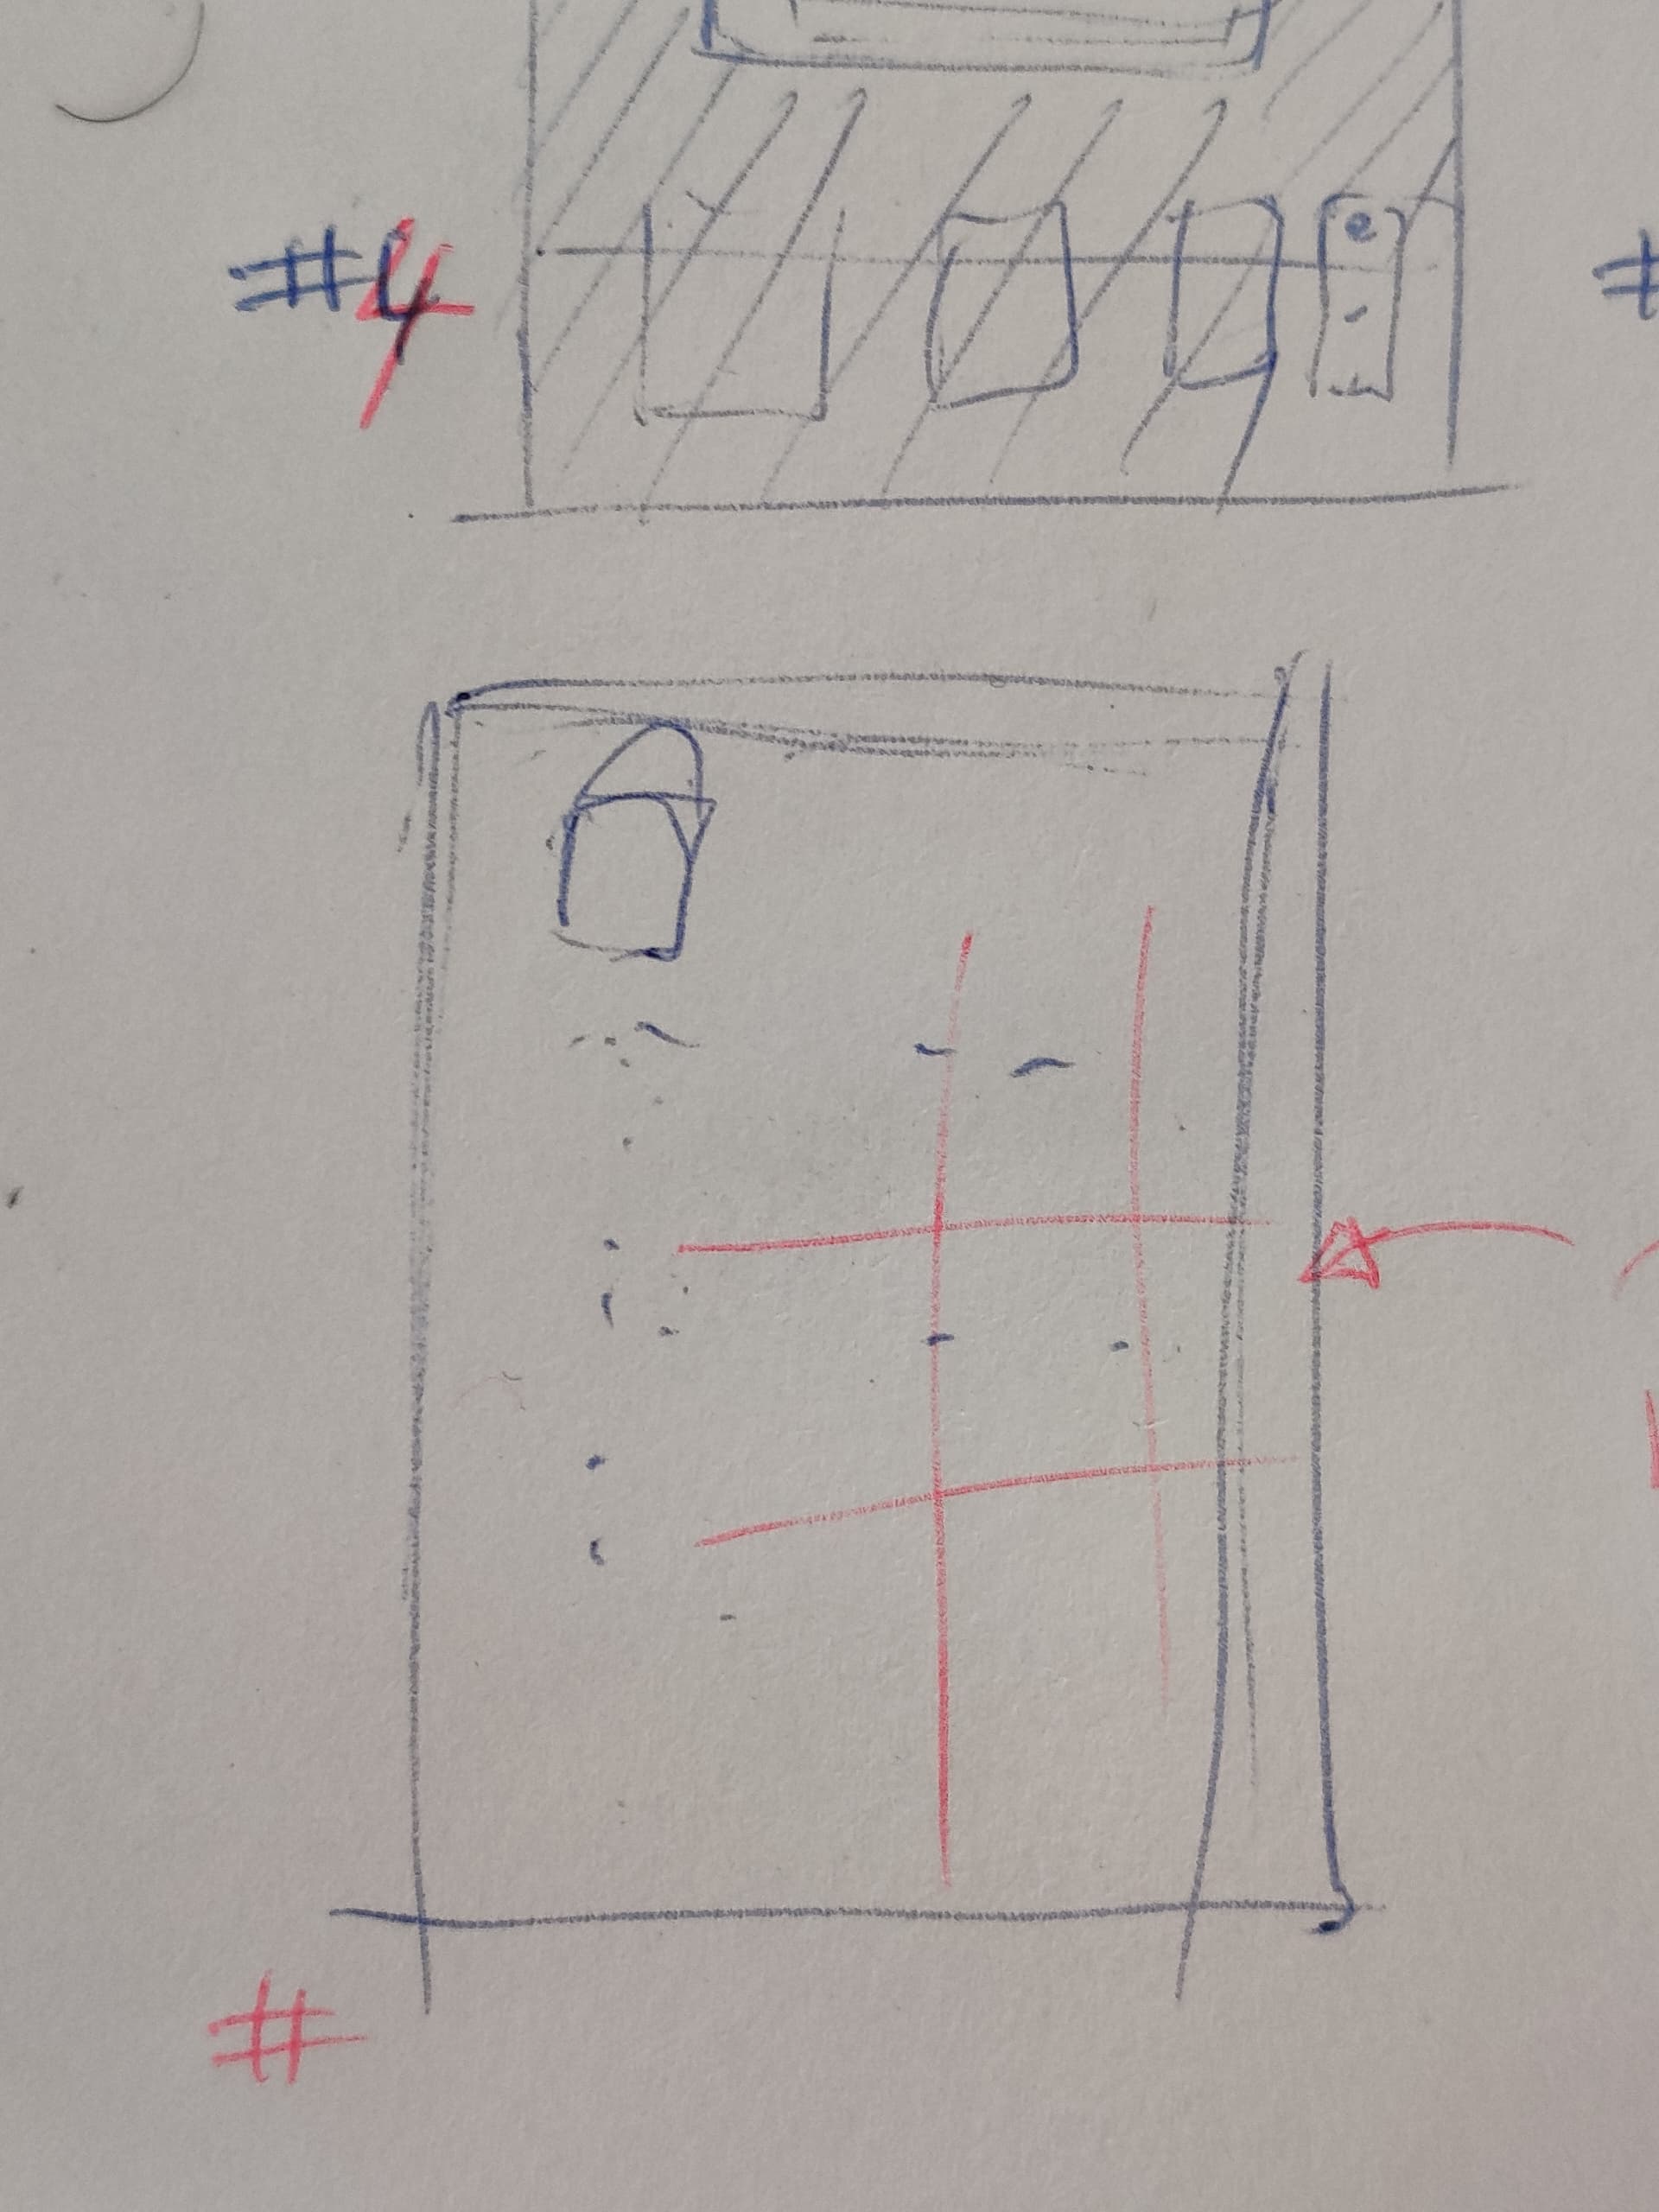 #4
#
#